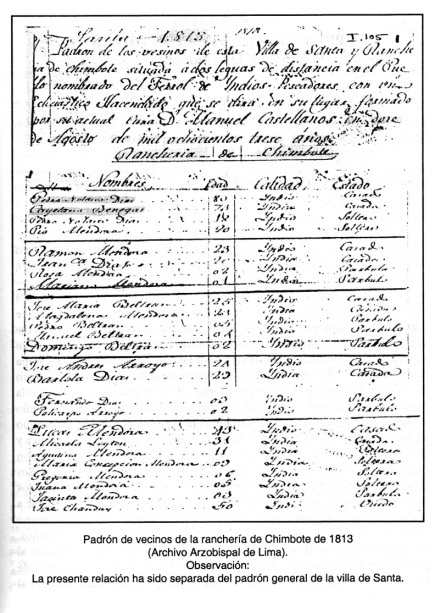 Santa - 1813
1813.
I.105 1
Padron de los vesinos de esta Villa de Santa y Ranche
ria de chimbote situada a dos leguas de distancia en el Pue
lo nombrado del Ferrol de Indios Pescadores con un
Eclesiastico Hacendado que se dira en su lugar, formado
por su actual Cura D. Manuel Castellanos en Dose
de Agosto de mil ochocientos trese años.
Rancheria de Chimbote
Nombres Edad Calidad Estado
Pedro Nolasco Dias 80 Indio Casado
Cayetana Benegas 73 India Casada
Pedro Dias 18 Indio Soltero
Pio Mendosa 20 Indio Soltero
Ramon Mendosa 23 Indio Casado
Juana Dias India Casada
Rosa Mendosa 02 India Parbula
Mariano Mendosa 01 Indio Parbulo
Jose Maria Beltran 25 Indio Casado
Magdalena Mendosa 23 India Casada
Pedro Beltran Indio Parbulo
Manuel Beltran 04 Indio Parbulo
Domingo Beltran 02 Indio Parbulo
Jose Andres Arroyo 24 Indio Casado
Bartola Dias 23 India Casada
Fernando Dias 03 Indio Parbulo
Policarpo Arroyo 02 Indio Parbulo
Lucas Mendosa 43 Indio Casado
Micaela Leyton 31 India Casada
Agustina Mendosa 11 India Soltera
Maria Concepcion Mendosa 09 India Soltera
Gregoria Mendosa 06 India Soltera
Juana Mendosa 05 India Soltera
Jacinta Mendosa 03 India Parbula
Jose Chanduy 50 Indio Viudo
Padrón de vecinos de la ranchería de Chimbote de 1813
(Archivo Arzobispal de Lima).
Observación:
La presente relación ha sido separada del padrón general de la villa de Santa.